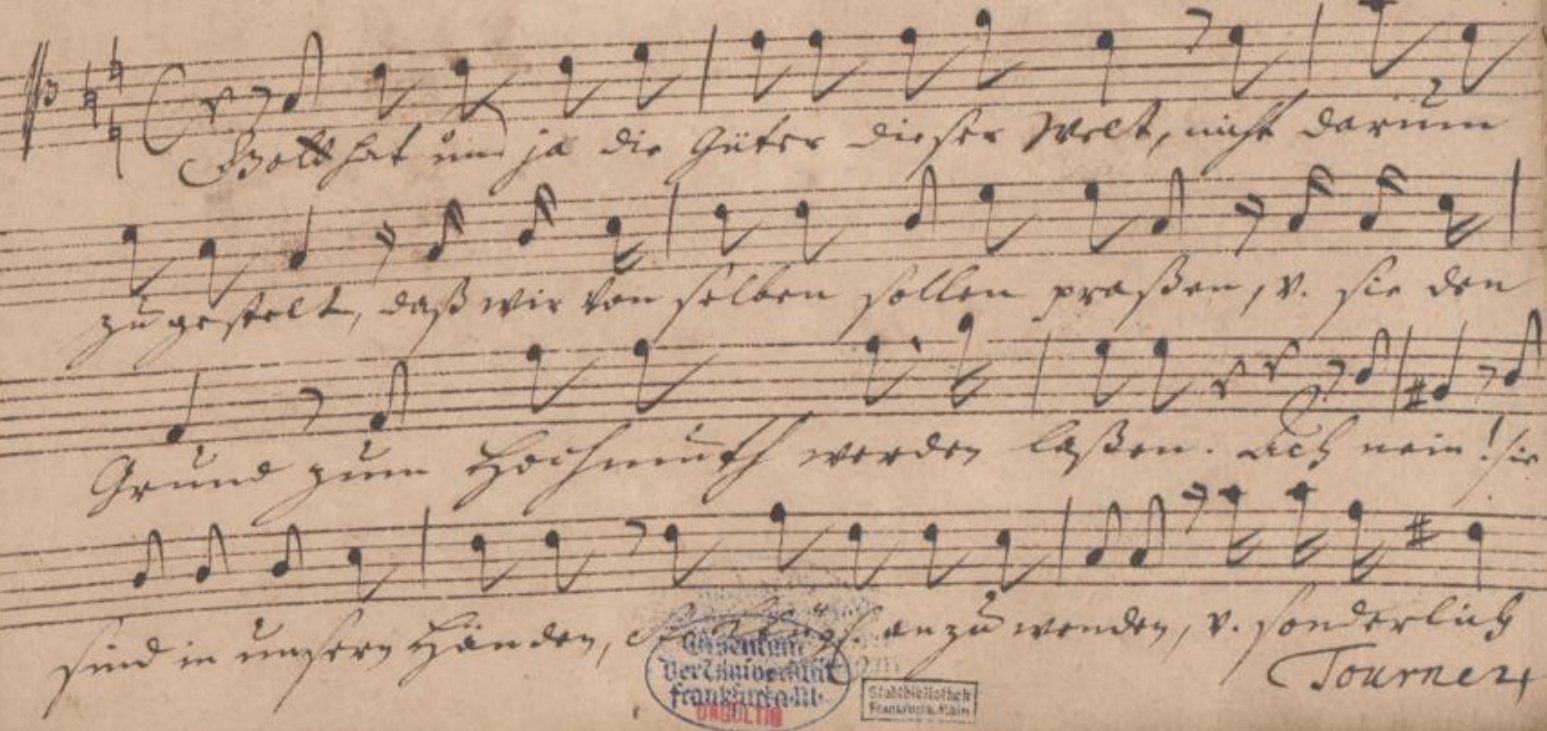 Gott hat uns ja die Güter dieser Welt, nicht darum
zu gestelt, daß wir von selben sollen praßen, v. sie den
Grund zum Hochmuth werden laßen. Ach nein! sie
sind in unsern Händen, anzuwenden, v. sonderlich
Tournez
Eigentum
der Universität
Frankfurt a. M.
UNGÜLTIG
Stadtbibliothek
Frankfurt a. Main